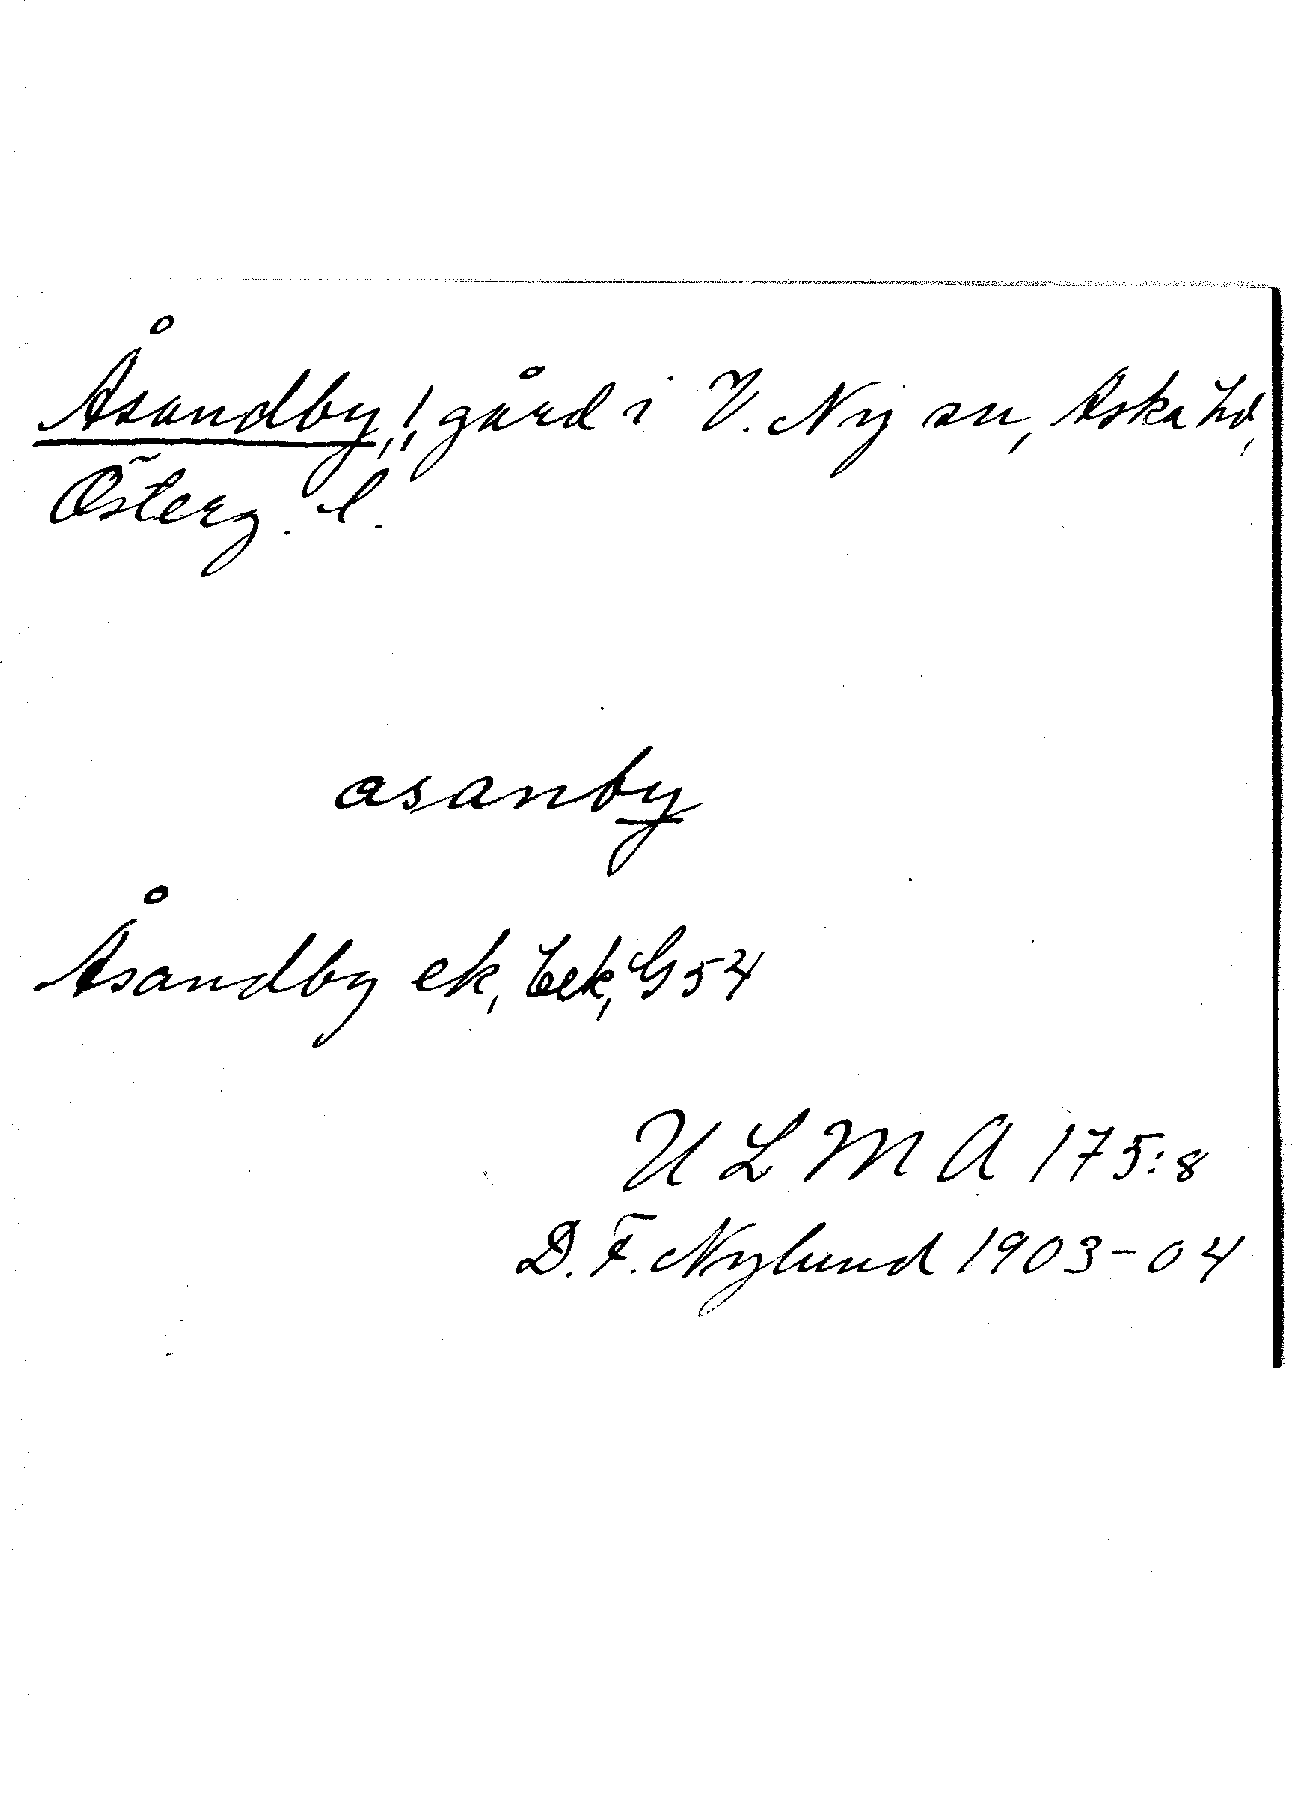 Åsandby,! gård i V. Ny sn, Aska hd,
Österg. l.
asanby
Åsandby ek, G54
U L M A 175:8
D. F. Nylund 1903-04